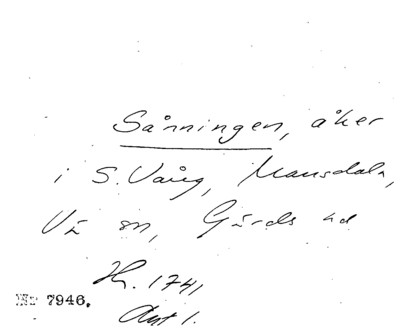 Sånningen, åker
i S. Vång, Mansdala,
Vä sn, Gärds hd
H. 1741
Akt 1.
Nr 7946.